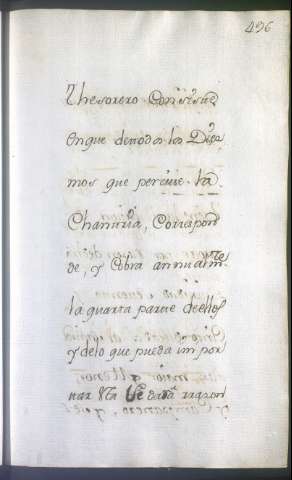 496
Thesorero Consiste
en que de toda la Diez
mos que percive la
Chantria, Correspon
de, y Cobra annualm.te
la quarta parte de ellos
y de lo que pueda impor
tar dara razon